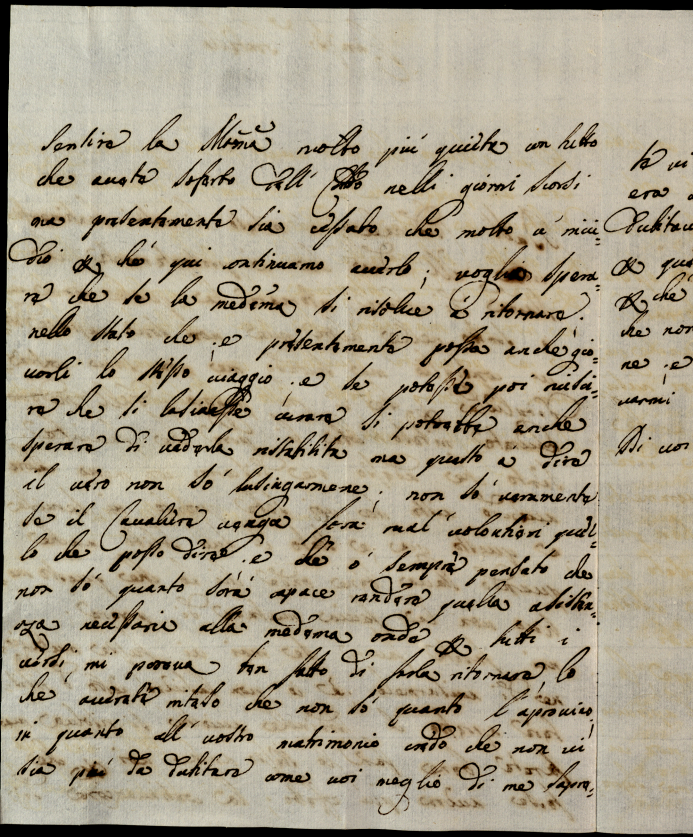 sentire la Mamã molto più quieta con tutto
che avete soferto dall' nelli giorni scorsi
ma presentemente sia cessato che molto à mici-
dio che qui continuamo averlo; voglio spera-
re che se la medema si risolve à ritornare
nello stato che è presentemente possa anche gio-
varli lo stesso viaggio e se potesse poi riusci-
re che si lasiasse curare si potrebbe anche
sperare di vederla ristabilita ma questo à dire
il vero non sò lusingarmene; non sò veramente
se il Cavaliere venga farà mal volentieri quel-
lo che posso dire è che ò sempre pensato che
non sò quanto sarà capace rendere quella assisten-
za necessaria alla medema onde tutti i
versi mi pareva ben fatto di farla ritornare, lo
che avrete inteso che non sò quanto l'aprovino
in quanto all' vostro matrimonio credo che non vi
sia più da dubitare come voi meglio di me sapre-
te vi
era
dubitav
qua
che
che non
ne e
varmi
Di voi